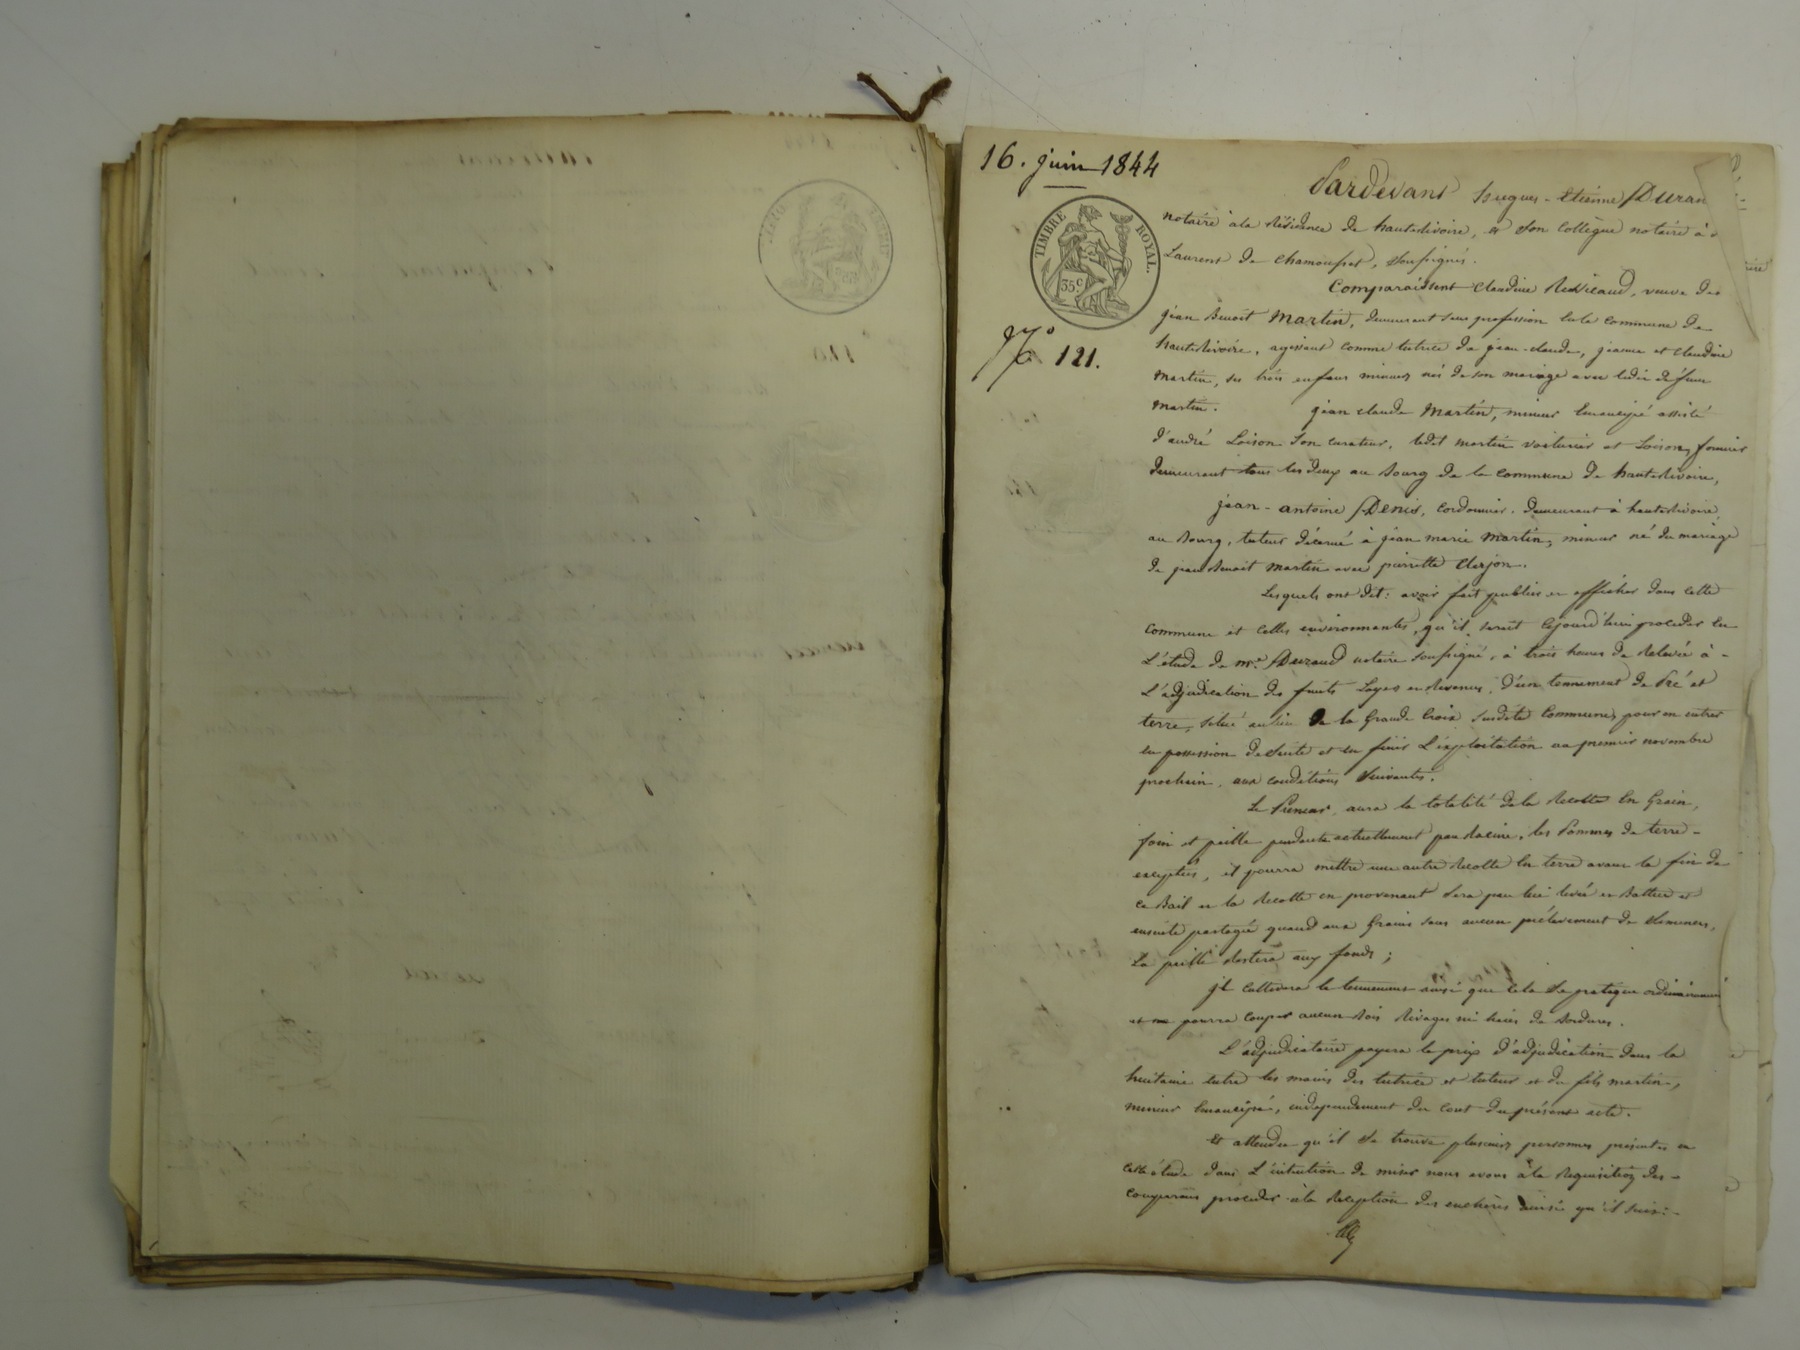 16. juin 1844
Pardevant hugues-Etienne Duran
notaire à la Résidence de hauterivoire, et son collègue notaire à s
Laurent de chamousset, soussignés.
TIMBRE ROYAL.
35c
Comparaissent Claudine Revicaud, veuve de
jean Benoit Martin, demeurant sans profession en la commune de
N° 121.
hauterivoire, agissant comme tutrice de jean-claude, jeanne et claudine
Martin, ses trois enfans mineurs nés de son mariage avec ledit défunt
Martin. jean claude Martin, mineur émancipé assisté
d'andré Loison son curateur, ledit martin voiturier et Loison, fournier
demeurant tous les deux au Bourg de la commune de hauterivoire,
jean-antoine Denis, cordonnier, demeurant à hauterivoire,
au Bourg, tuteur décerné à jean marie Martin, mineur né du mariage
de jean Benoit Martin avec pierrette Clerjon.
Lesquels ont dit: avoir fait publier et afficher dans cette
commune et celles environnantes, qu'il serait cejourd'hui procéder en
L'étude de me Durand notaire soussigné, à trois heures de Relevée à
L'adjudication des fruits Loyers et Revenus, d'un tennement de Pré et
terre, situé au lieu de la Grande Croix susdite Commune, pour en entrer
en possession de suite et en finir L'exploitation au premier novembre
prochain, aux conditions suivantes.
Le Preneur, aura la totalité de la Récolte en Grain,
foin et paille pendante actuellement par Racine, les Pommes de terre
exceptées, il pourra mettre une autre Récolte en terre avant la fin de
ce Bail et la Récolte en provenant sera par lui levée et Battue et
ensuite partagée quand aux Grains sans aucun prélèvement de Semences,
La paille Restera aux fonds;
jl cultivera le tennement ainsi que cela se pratique ordinairement
et ne pourra couper aucun Bois Rivages ni haies de Bordures.
L'adjudicataire payera le prix d'adjudication dans la
huitaine entre les mains des tutrice et tuteur et du fils martin,
mineur émancipé, indépendament du cout du présent acte.
Et attendu qu'il se trouve plusieurs personnes présentes en
cette étude dans L'intention de miser nous avons à la Réquisition des
comparans procéder à la Réception des enchères ainsi qu'il suit: